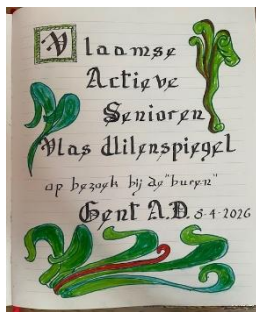 Vlaamse
Actieve
Senioren
Vlas Uilenspiegel
op bezoek bij de "buren"
Gent A.D. 8-4-2026